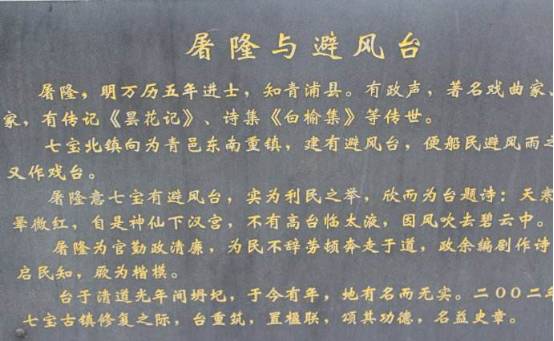 屠隆与避风台
屠隆，明万历五年进士，知青浦县。有政声，著名戏曲家、
家，有传记《昙花记》、诗集《白榆集》等传世。
七宝北镇向为青邑东南重镇，建有避风台，便船民避风雨之
又作戏台。
屠隆意七宝有避风台，实为利民之举，欣而为台题诗：天
晕微红，自是神仙下汉宫，不有高台临太液，因风吹去碧云中。
屠隆为官勤政清廉，为民不辞劳顿奔走于道，政余编剧作诗
启民知，厥为楷模。
台于清道光年间坍圮，于今有年，地有名而无实。二〇〇二年
七宝古镇修复之际，台重筑，置楹联，颂其功德，名益史章。